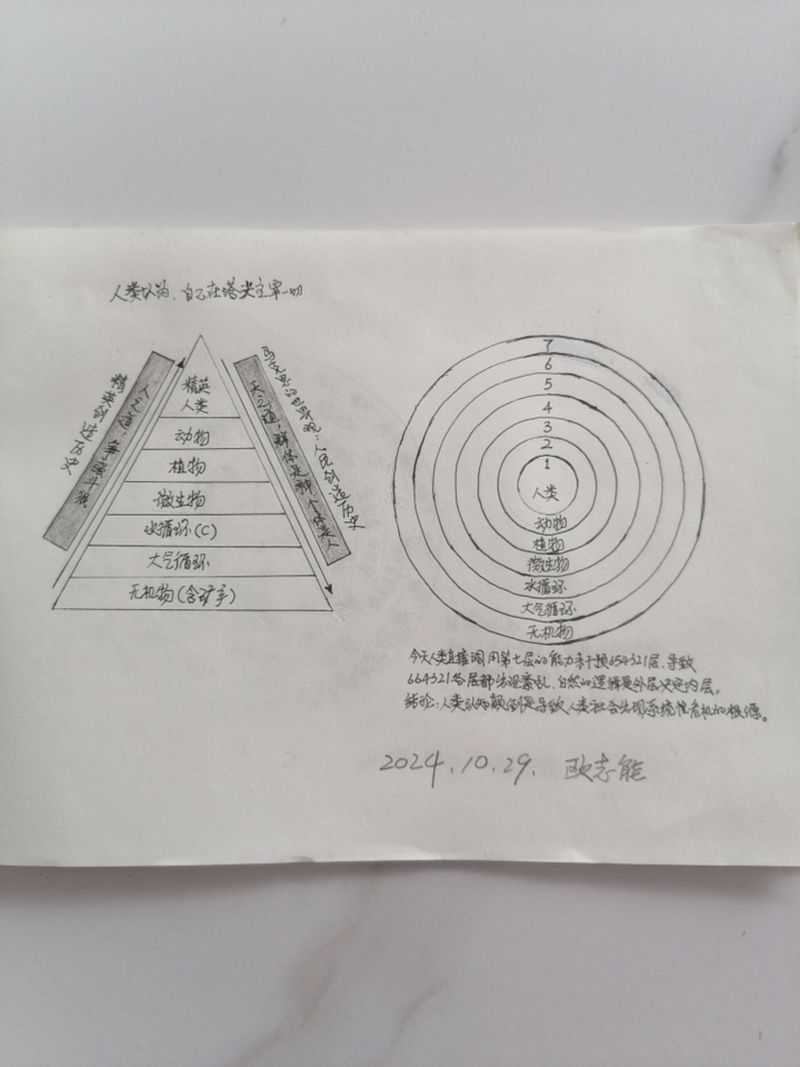 人类以为,自己在塔尖主宰一切
精英创造历史
人之道:争强斗狠
精英
人类
动物
植物
微生物
水循环(C)
大气循环
无机物(含矿手)
天之道:群体是神个体是人
世界观:人民创造历史
7
6
5
4
3
2
1
人类
动物
植物
微生物
水循环
大气循环
无机物
今天人类直接调用第七层的能力来干预654321层,导致
664321各层都出现紊乱,自然的逻辑是外层决定内层。
结论:人类认知颠倒是导致人类社会出现系统性危机的根源。
2024.10.29. 欧志能